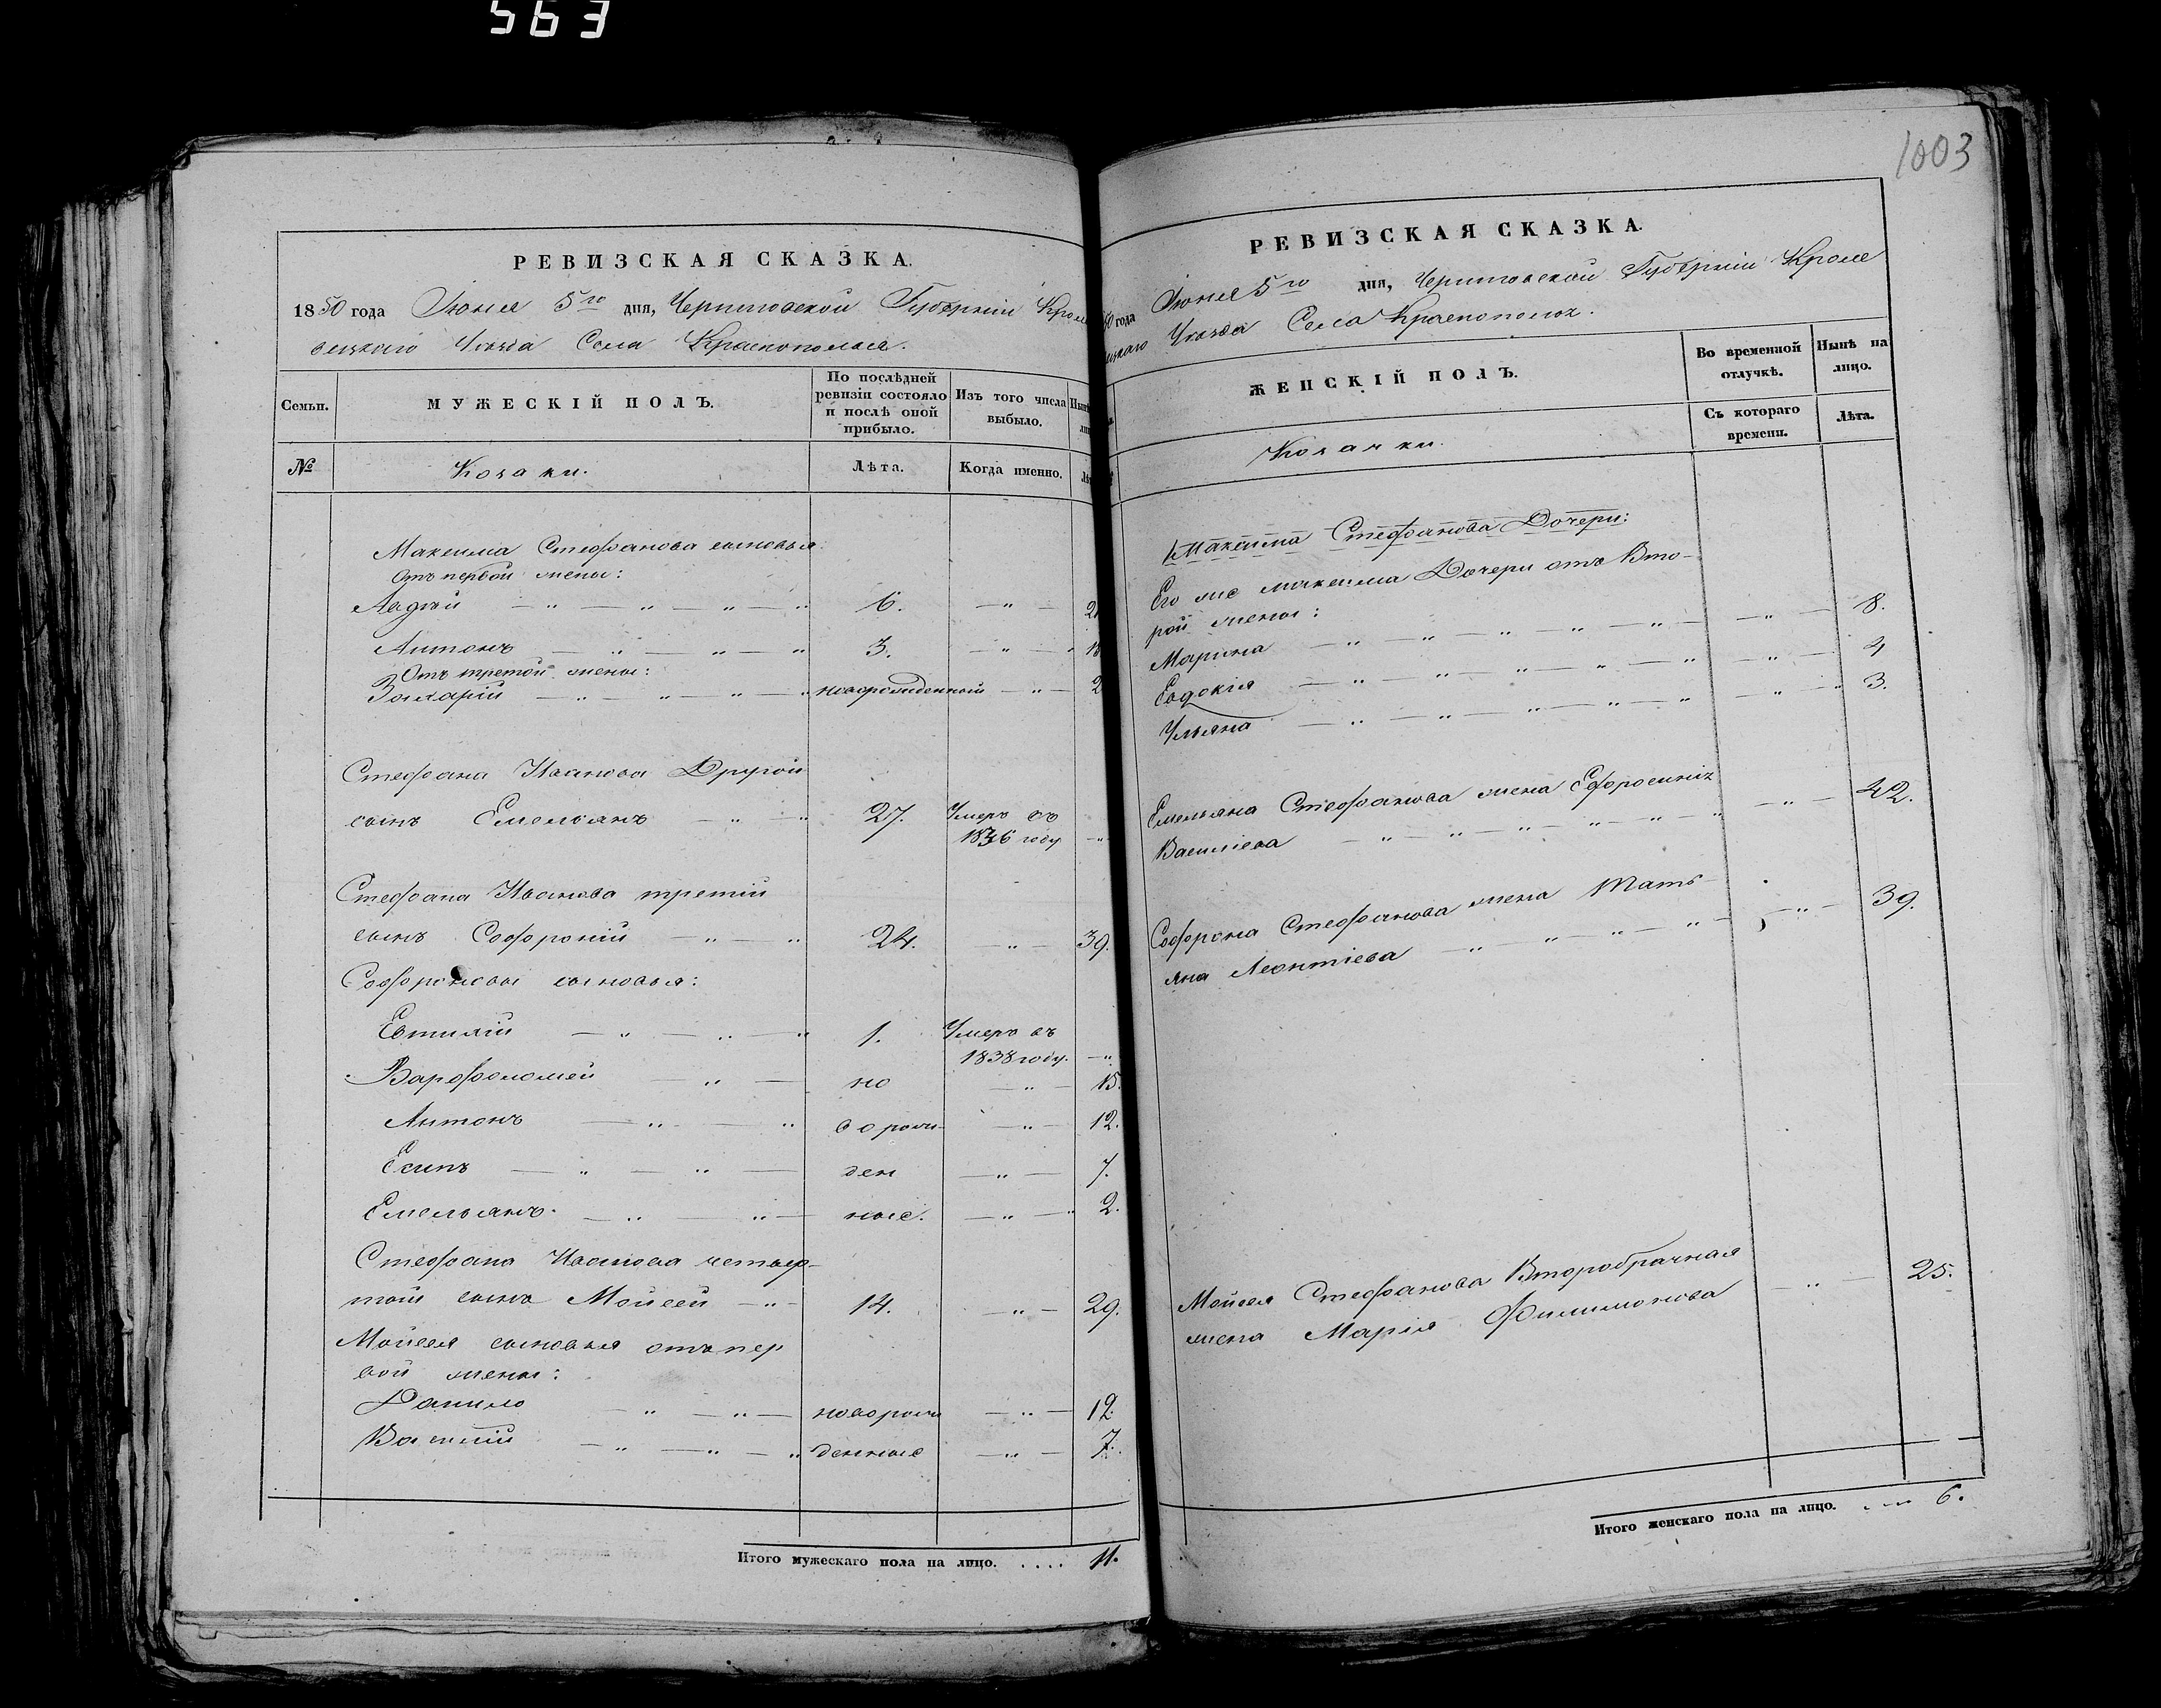 563
1003
РЕВИЗСКАЯ СКАЗКА.
1850 года Июня 5го дня, Черниговской Губерніи Кроле
вецкаго Уѣзда Села Краснополья.
Семьи.
МУЖЕСКІЙ ПОЛЪ.
По послѣдней ревизіи состояло и послѣ оной прибыло.
Изъ того числа выбыло.
№
Козаки.
Лѣта.
Когда именно.
Максима Стефанова сыновья
Отъ первой жены:
Авдѣй — „ — „ — „ — „ 6. — „ — 21
Антонъ — „ — „ — „ 3. — „ — „ 18
Отъ третой жены:
— „ — „ — „ — „ новорожденный — „ — 2
Стефана Иванова Другой
сынъ Емельянъ — „ — „ 27. Умеръ въ
1836 году — „
Стефана Иванова третій
сынъ Софроній — „ — „ 24. „ — 39.
Софроновы сыновья:
Евтихій — „ — „ — „ 1. Умеръ въ
1838 году. — „
Варфоломей — „ — но — „ — 15.
Антонъ — „ — „ ворож — „ — 12.
Есипъ — „ — „ — ден — „ — 7.
Емельянъ. — „ — „ — ные. — „ — „ 2.
Стефана Иванова четвер-
той сынъ Мойсей — „ — 14. — „ — 29.
Мойсея сыновья отъ пер
вой жены:
Данило — „ — „ — новорож — „ — 12.
Василій — „ — „ — „ денные — „ — 7.
Итого мужескаго пола на лицо. . . . . 11.
РЕВИЗСКАЯ СКАЗКА.
50 года Июня 5го дня, Черниговской Губерніи Кроле
вецкаго Уѣзда Села Краснополья.
ЖЕНСКІЙ ПОЛЪ.
Во временной отлучкѣ.
Нынѣ на лицо.
Козачки.
Съ котораго времени.
Лѣта.
Максима Стефанова Дочери:
Его же Максима Дочери отъ Вто-
рой жены:
Марина — „ — „ — „ — „ — „ — — „ — 8.
Евдокія — „ — „ — „ — „ — „ — „ — 4
Ульяна — „ — „ — „ — „ — „ — „ — „ 3.
Емельяна Стефанова жена Ефросинія
Василіева — „ — „ — „ — „ — „ — „ — „ — 42.
Софрона Стефанова жена Тать-
яна Леонтіева — „ — „ — „ — „ — — „ — 39.
Мойсея Стефанова Второбрачная
жена Марія Филимонова — „ — 25.
Итого женскаго пола на лицо. . . . 6.